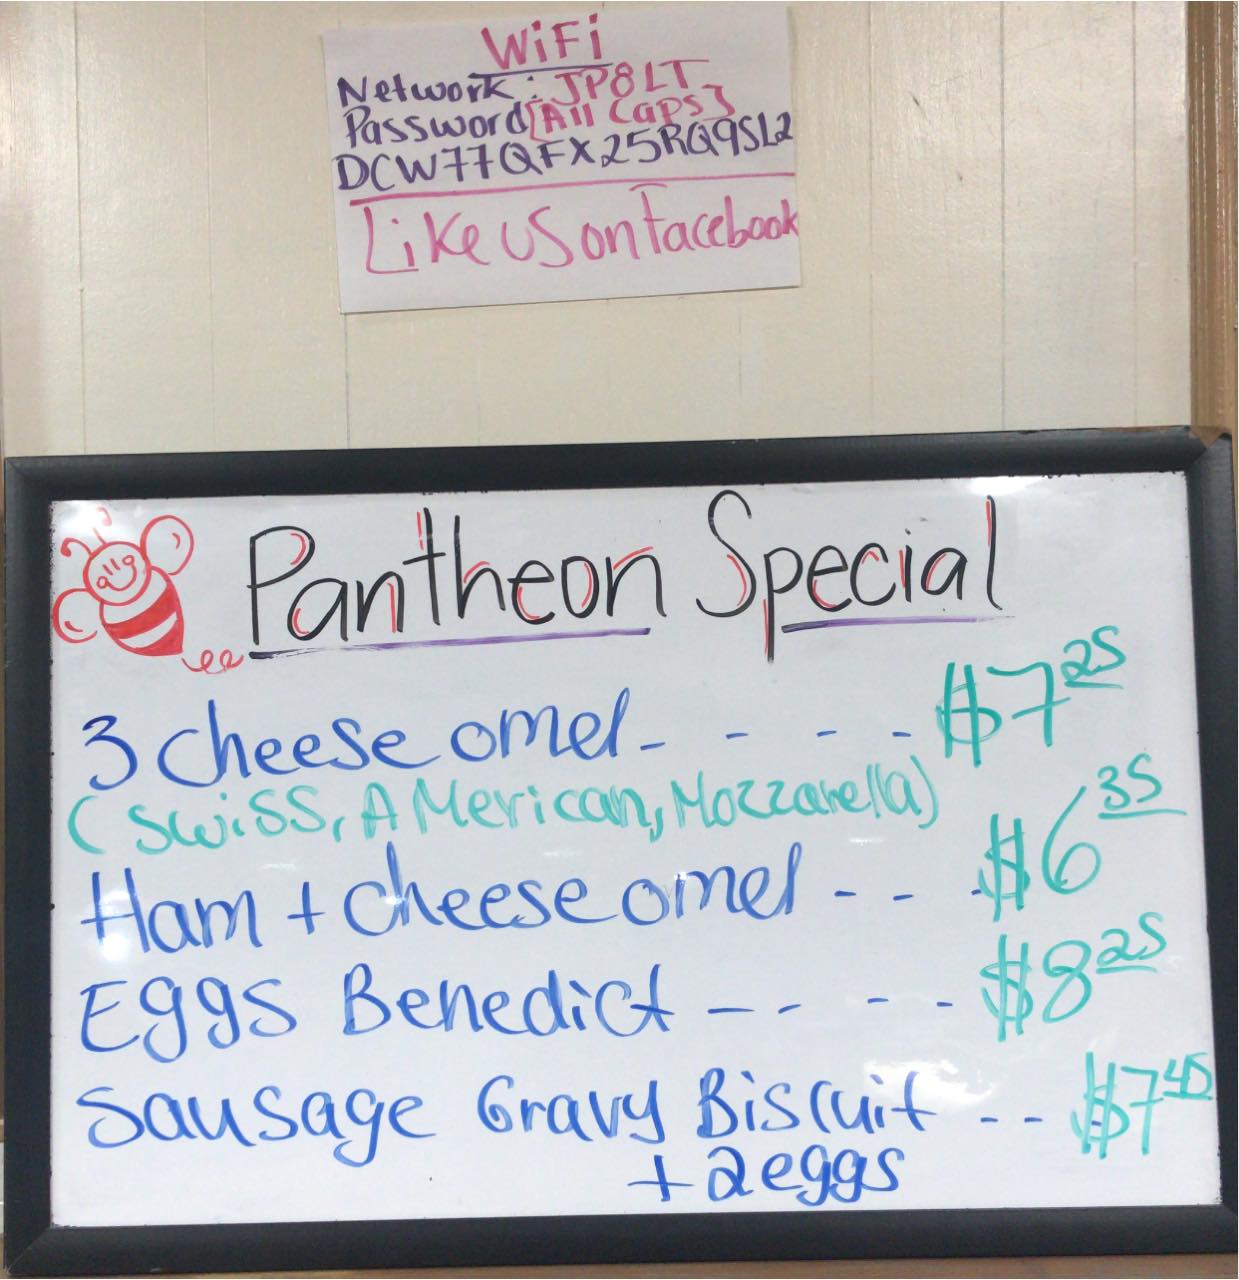 WiFi
Network: JP8LT
Password [All Caps]
DCW77QFX25RQ9SL2
Like us on Facebook
Pantheon Special
3 cheese omel- - - - $7 25
(Swiss, American, Mozzarella)
Ham + cheese omel - - - $6 35
Eggs Benedict - - - - $8 25
Sausage Gravy Biscuit - - $7 45
+ 2 eggs